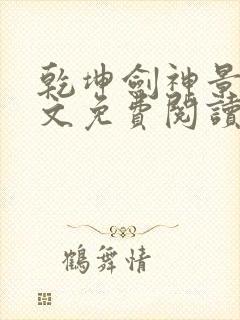 乾坤劍神景
文免費閱讀
鶴舞情